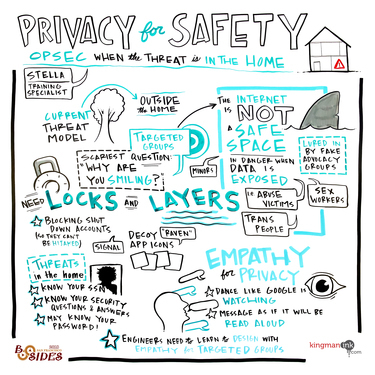 PRIVACY for SAFETY
OPSEC WHEN THE THREAT is IN THE HOME
STELLA
TRAINING
SPECIALIST
CURRENT
THREAT
MODEL
OUTSIDE
THE HOME
TARGETED
GROUPS
SCARIEST QUESTION:
WHY ARE
YOU SMILING?
THE INTERNET
IS NOT
A SAFE
SPACE
IN DANGER WHEN
DATA IS
EXPOSED
MINORS
LURED IN
BY FAKE
ADVOCACY
GROUPS
SEX
WORKERS
ABUSE
VICTIMS
TRANS
PEOPLE
NEED LOCKS AND LAYERS
BLOCKING SHUT
DOWN ACCOUNTS
SIGNAL
DECOY "RAVEN"
APP ICONS
THREATS
in the home
KNOW YOUR SSN
KNOW YOUR SECURITY
QUESTIONS & ANSWERS
MAY KNOW YOUR
PASSWORD!
EMPATHY
for PRIVACY
DANCE LIKE GOOGLE IS
WATCHING
MESSAGE AS IF IT WILL BE
READ ALOUD
ENGINEERS NEED to LEARN to DESIGN WITH
EMPATHY for TARGETED GROUPS
BSIDES
kingmanink.com